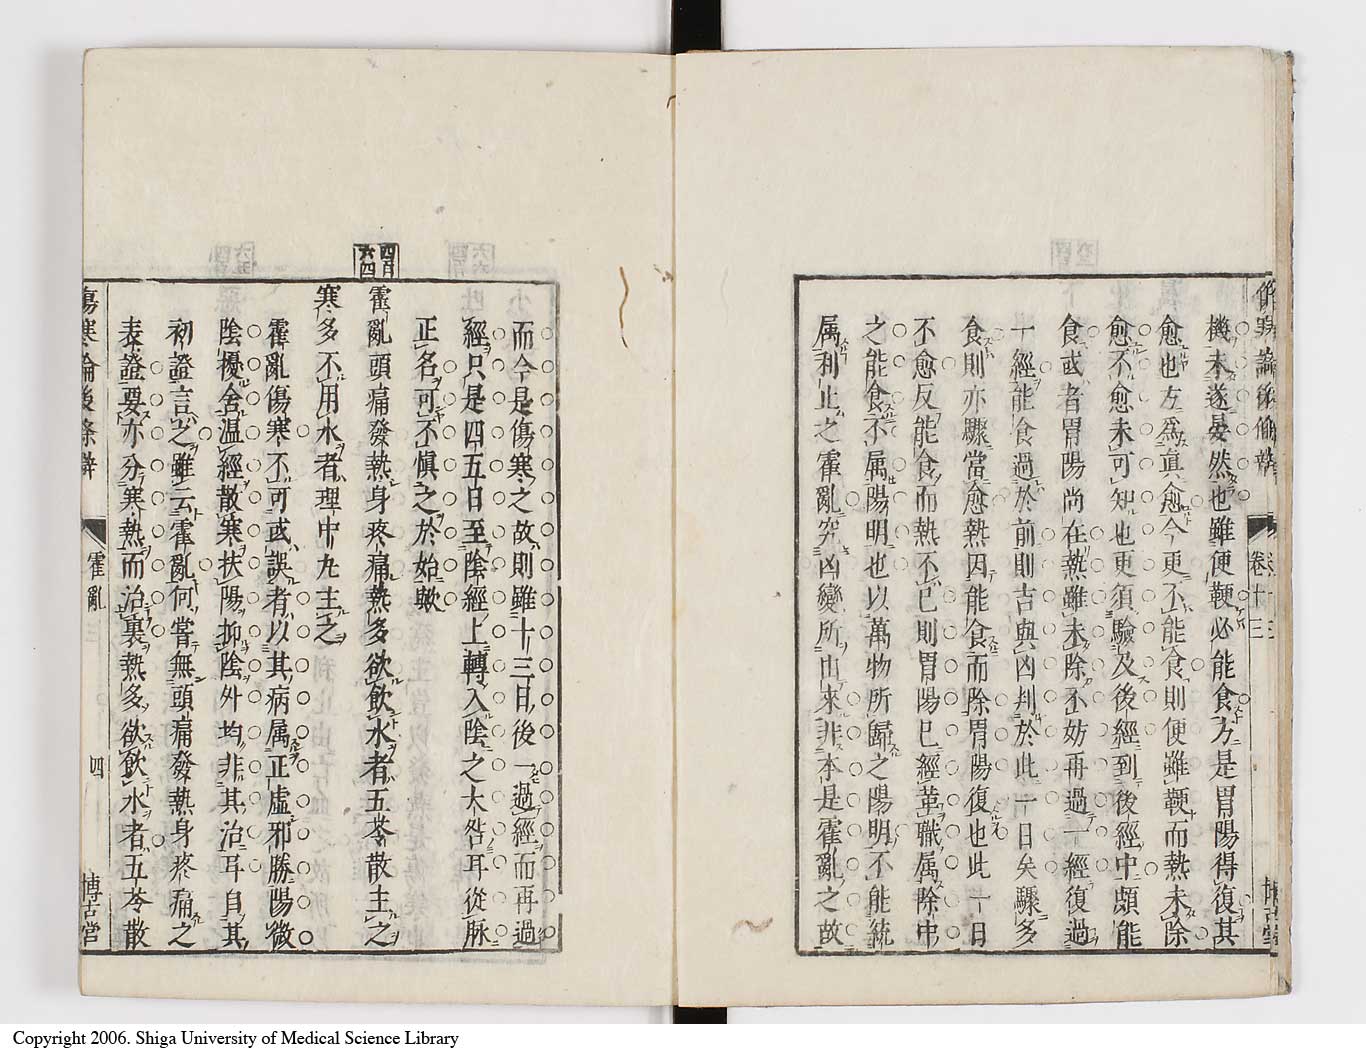 傷寒論後條辨
卷十三
機未遂晏然也雖便鞕必能食方是胃陽得復其
愈也左為直愈今更不能食則便雖鞕而熱未除
愈不愈未可知也更須驗及後經到後經中頗能
食或者胃陽尚在熱雖未除不妨再過一經復過
一經能食過於前則吉與凶判於此一日矣驟多
食則亦驟當愈熱因能食而除胃陽復也此一日
不愈反能食而熱不已則胃陽已經革職属除中
之能食不属陽明也以萬物所歸之陽明不能統
属利止之霍亂究凶變所由來非本是霍亂之故
而今是傷寒之故則雖十三日後一過經而再過
經只是四五日至陰經上轉入陰之大咎耳從脉
正名可不愼之於始歟
四百六四
霍亂頭痛發熱身疼痛熱多欲飲水者五苓散主之
寒多不用水者理中丸主之
霍亂傷寒不可或誤者以其病属正虛邪勝陽微
陰擾舍温經散寒扶陽抑陰外均非其治耳自其
初證言之雖云霍亂何嘗無頭痛發熱身疼痛之
表證要亦分寒熱而治裏熱多欲飲水者五苓散
傷寒論後條辨
霍亂三
四
博古堂
Copyright 2006. Shiga University of Medical Science Library